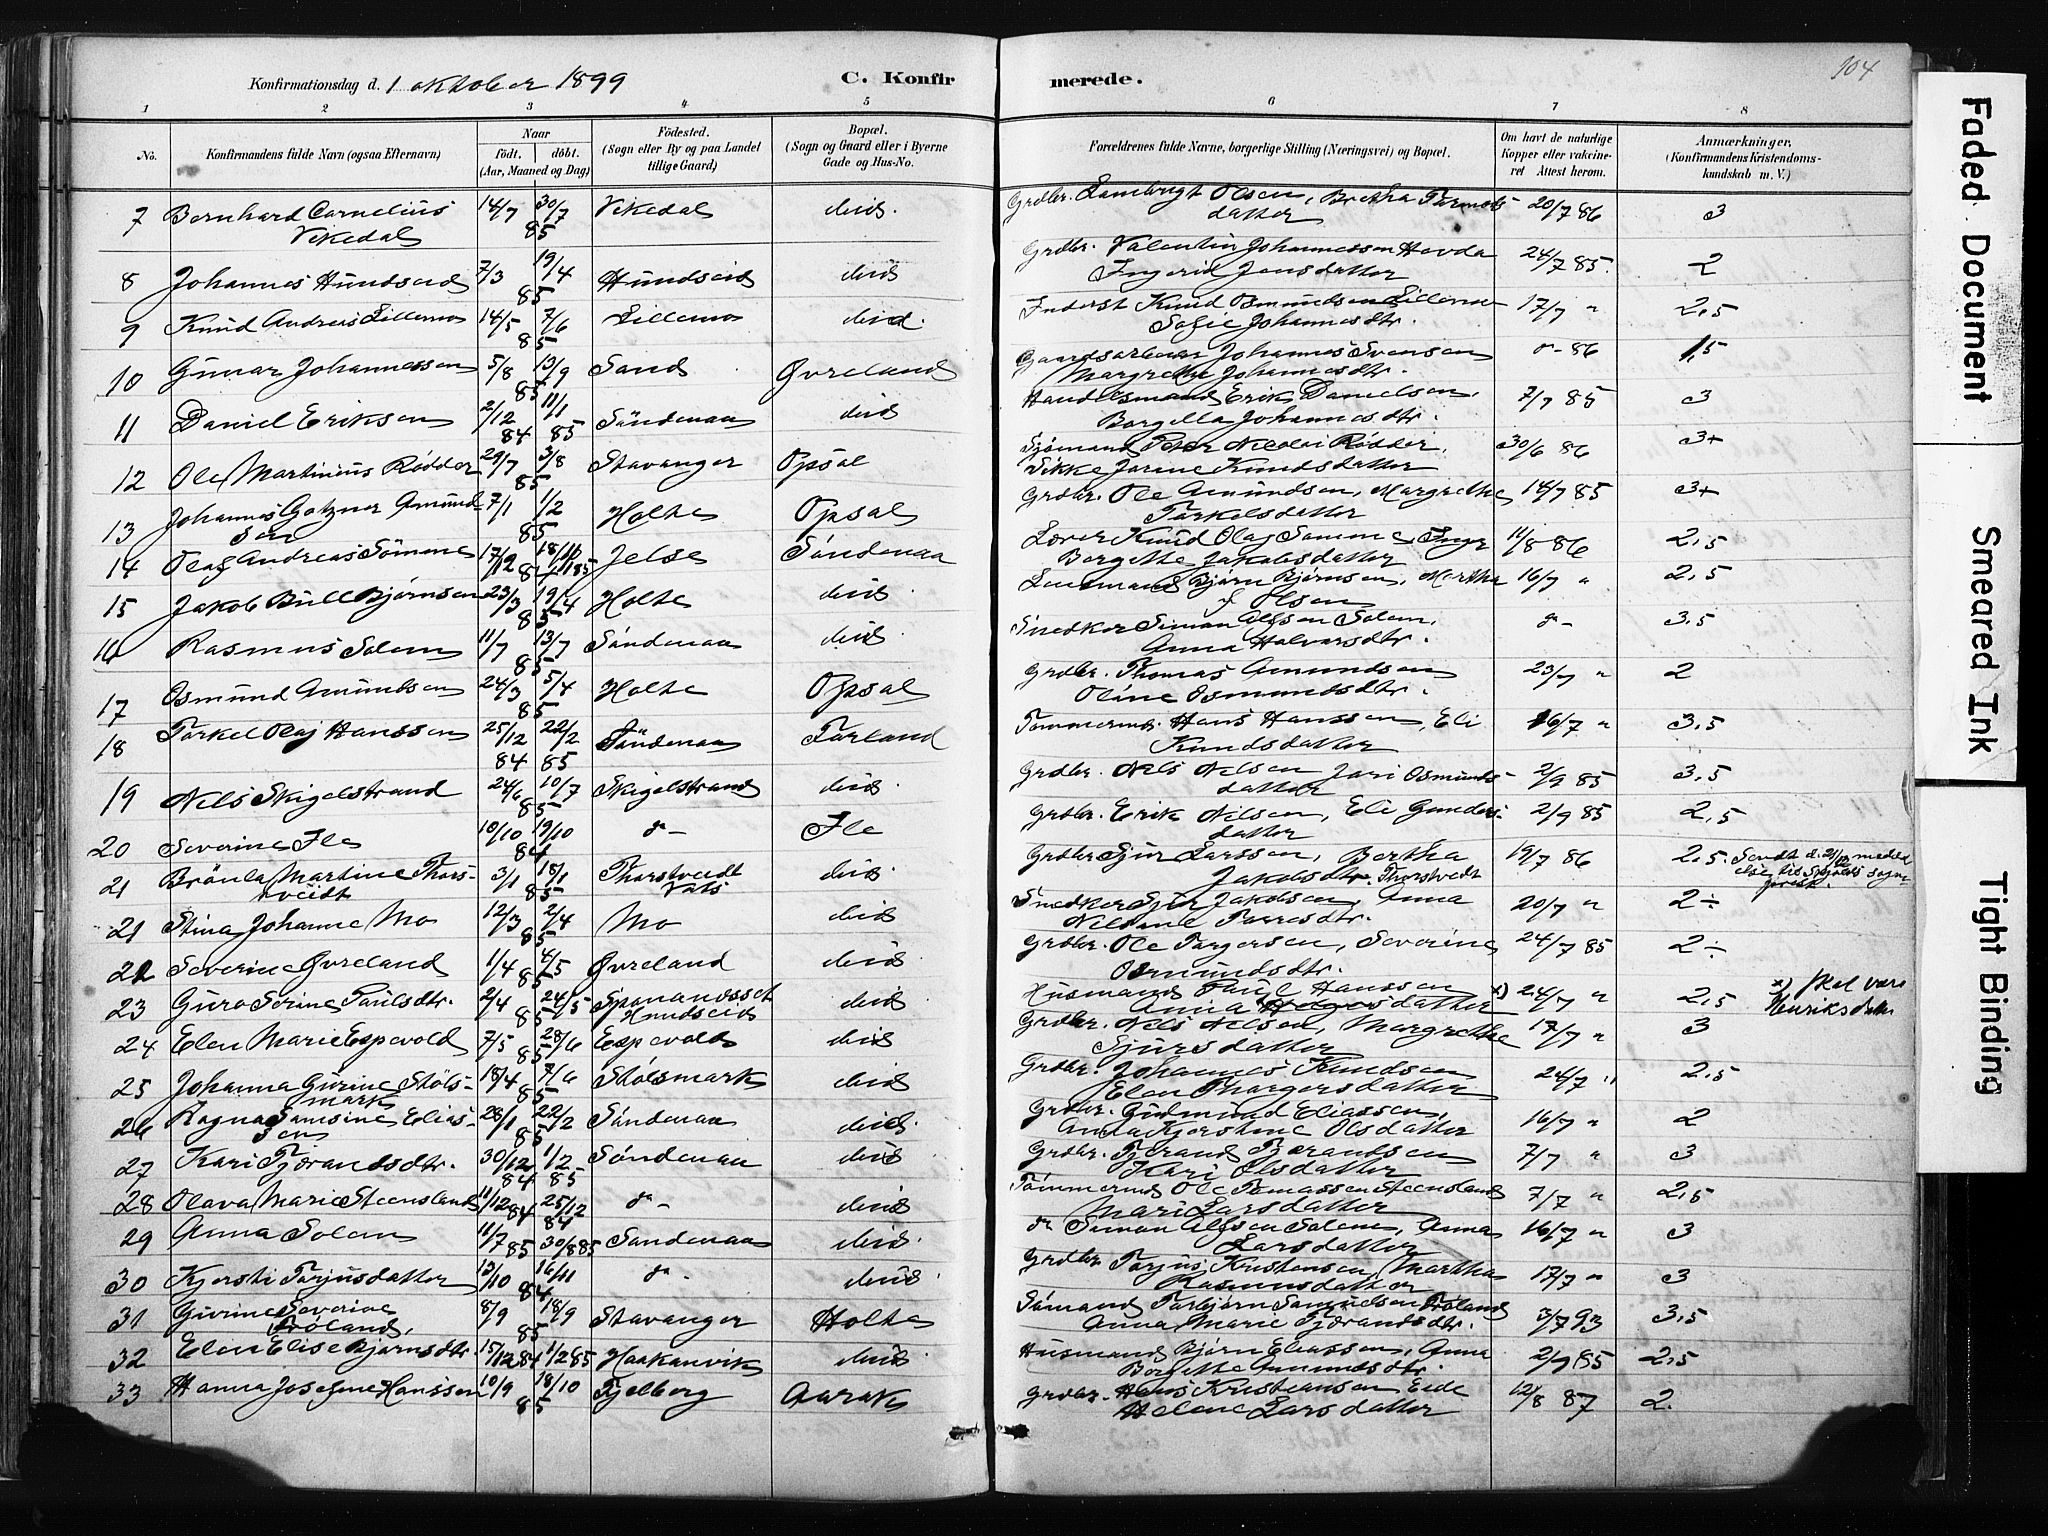 Konfirmationsdag d. 1 oktober 1899
C. Konfirmerede.
104
1 2 3 4 5 6 7 8
No.
Konfirmandens fulde Navn (ogsaa Efternavn)
Naar født. døbt. (Aar, Maaned og Dag)
Fødested. (Sogn eller By og paa Landet tillige Gaard)
Bopæl. (Sogn og Gaard eller i Byerne Gade og Hus-No.
Forældrenes fulde Navne, borgerlige Stilling (Næringsvei) og Bopæl.
Om havt de naturlige Kopper eller vakcineret Attest herom.
Anmærkninger, (Konfirmandens Kristendomskundskab m. V.)
7 Bernhard Cornelius Vikedal 14/7 30/7 85 Vikedal ibid. Grdbr. Lambregt Olsen, Bertha Tormodsdatter 20/7 86 3
8 Johannes Hundseid 7/3 19/4 85 Hundseid ibid Grdbr. Valentin Johannessen Hovda Ingerid Jensdatter 24/7 85. 2
9 Knud Andreas Lillemo 14/5 7/6 85 Lillemo ibid. Inderst Knud Osmundsen Lillemo Sofie Johannesdtr. 17/7 " 2,5
10 Gunar Johannessen 5/8 13/9 85 Sand Øvreland Gaardsarbeider Johannes Svensen Margrethe Johannesdtr. 86 1,5
11 Daniel Eriksen 2/12 84 11/1 85 Søndenaa ibid Handelsmand Erik Danielsen, Borgella Johannesdtr. 7/7 85 3
12 Ole Martinius Rødder 29/7 3/8 85 Stavanger Opsal Sjømand Peter Nicolai Rødder, Sikke Jorine Knudsdatter 30/6 86 3+
13 Johannes Gotzner Amundsen 7/1 1/2 85 Holte Opsal Grdbr. Ole Amundsen, Margrethe Torkelsdatter 14/7 85 3+
14 Olaf Andreas Sømme 17/12 84 Jelse Søndenaa Lærer Knud Olaf Sømme Borgitte Jakobsdatter 11/8 86 2,5
15 Jakob Bull Bjørnsen 23/3 19/4 85 Holte ibid Lensmand Bjørn Bjørnsen, Martha f. Olsen 16/7 " 2,5
16 Rasmus Solem 11/7 13/7 85 Søndenaa ibid. Snedker Simon Alfsen Solem, Anna Halvarsdtr. 3,5
17 Osmund Amundsen 24/3 5/4 85 Holte Opsal Grdbr. Thomas Amundsen Oline Osmundsdtr. 23/7 " 2
18 Torkel Olaj Hanssen 25/12 84 22/2 85 Søndenaa Førland Tømmermd. Hans Hanssen, Eli Knudsdatter 16/7 " 3,5
19 Nels Skigelstrand 24/6 10/7 85 Skigelstrand ibid. Grdbr. Nels Nelsen Jari Osmundsdatter 2/9 85 3,5
20 Severine Ile 10/10 19/10 84 do- Ile Grdbr. Erik Nilsen, Eli Gundersdatter 2/9 85 2,5
21 Brønla Martine Thorsveidt 3/1 18/1 85 Thorstveidt Vats ibid. Grdbr. Sjur Larssen, Bertha Jakobsdtr. Thorstvedt 19/7 86 2,5. Sendt d. meddelelse til Skjolds sogneprest.
21 Stina Johanne Mo 12/3 2/4 85 Mo ibid Snedker Sjur Jakobsen, Anna Nelsine Torresdtr. 20/7 " 2÷
22 Severine Øvreland 1/4 4/5 85 Øvreland ibid Grdbr. Ole Torgersen, Severine Osmundsdtr. 24/7 85 2÷
23 Guro Serine Paulsdtr. 2/4 24/5 85 Hundseid ibid Husmand Paul Hanssen Anna datter x) 24/7 " 2,5 x) skal være Henriksdatter
24 Elen Marie Espevold 7/5 28/6 85 Espevold ibid Grdbr. Nels Nelsen, Margrethe Sjursdatter 17/7 " 3
25 Johanna Gurine Stølsmark 18/4 7/6 85 Stølsmark ibid Grdbr. Johannes Knudsen Elen Thorgersdatter 24/7 " 2,5
26 Ragna Samsine Eliassen 28/1 22/2 85 Søndenaa ibid. Grdbr. Gudmund Eliassen, Anna Kjerstine Olsdatter 16/7 " 2
27 Kari Tjørandsdtr. 30/12 84 1/2 85 Søndenaa ibid Grdbr. Tjørand Tjørandsen Kari Olsdatter 7/7 " 3
28 Olava Marie Steensland 11/12 84 25/12 84 do- ibid Tømmermd Ole Tomassen Steensland Mari Larsdatter 7/7 " 2,5
29 Anna Solem 11/7 85 30/8 85 Søndenaa ibid. do Simon Alfsen Solem, Anna Larsdatter 16/7 " 3
30 Kjersti Torjusdatter 13/10 16/11 84 do- ibid. Grdbr. Torjus Kristensen, Martha Rasmusdatter 17/7 " 3
31 Gurine Severine Frøland, 8/9 18/9 85 Stavanger Holte Sømand Torbjørn Samuelsen Frøland Anna Marie Tjørandsdtr. 3/7 93 3,5
32 Elen Elise Bjørnsdtr. 15/12 84 1/2 85 Haakanvik ibid Husmand Bjørn Eliassen, Anna Borgitte Amundsdtr. 2/9 85 2,5
33 Hanna Josefine Hanssen 10/9 18/10 85 Fjelberg Aarak Grdbr. Hans Kristiansen Eide Helene Larsdatter 12/8 87 2.
Faded Document
Smeared Ink
Tight Binding